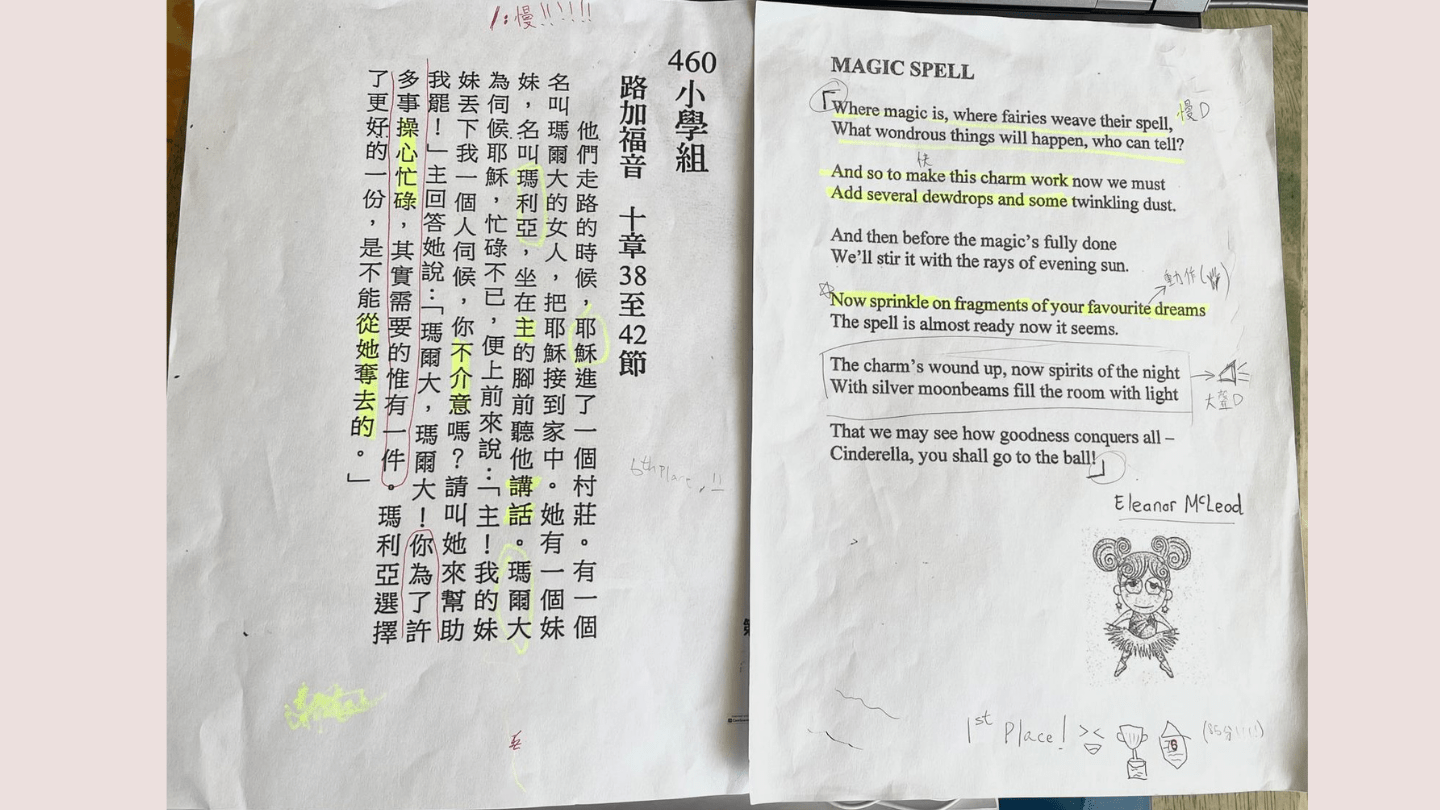 1:慢!!!!!
460小學組
路加福音 十章38至42節
他們走路的時候，耶穌進了一個村莊。有一個
名叫瑪爾大的女人，把耶穌接到家中。她有一個妹
妹，名叫瑪利亞，坐在主的腳前聽他講話。瑪爾大
為伺候耶穌，忙碌不已，便上前來說：「主！我的妹
妹丟下我一個人伺候，你不介意嗎？請叫她來幫助
我罷！」主回答她說：「瑪爾大，瑪爾大！你為了許
多事操心忙碌，其實需要的惟有一件。瑪利亞選擇
了更好的一份，是不能從她奪去的。」
5th place,!!
MAGIC SPELL
「Where magic is, where fairies weave their spell,
慢D
What wondrous things will happen, who can tell?
快
And so to make this charm work now we must
Add several dewdrops and some twinkling dust.
And then before the magic's fully done
We'll stir it with the rays of evening sun.
動作
Now sprinkle on fragments of your favourite dreams
The spell is almost ready now it seems.
The charm's wound up, now spirits of the night
With silver moonbeams fill the room with light
大聲D
That we may see how goodness conquers all –
Cinderella, you shall go to the ball!」
Eleanor McLeod
1st Place! >< (85分!!!!)